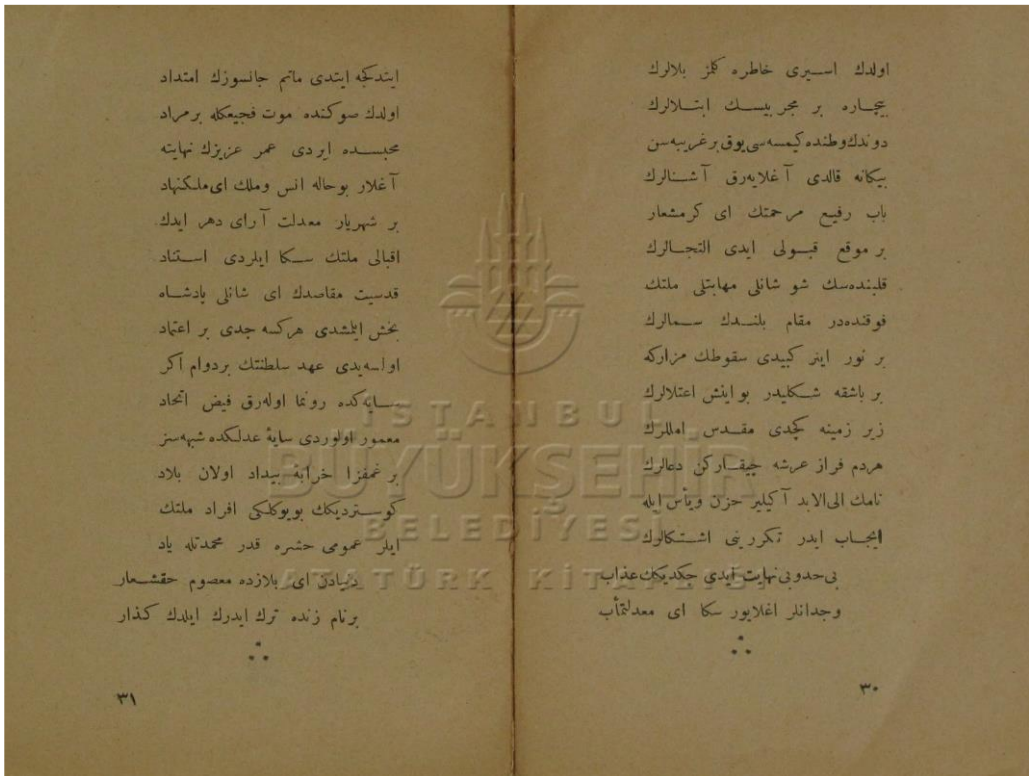 اولدك اسیری خاطره كلمز بلالرك
بیچاره بر مجربیسك ابتلالرك
دوندك وطنده كیمسه‌سی یوق بر غریبه سن
بیكانه قالدی آغلایه‌رق آشنالرك
باب رفیع مرحمتك ای كرمشعار
بر موقع قبولی ایدی التجالرك
قلبنده‌سك شو شانلی مهابتلی ملتك
فوقنده‌در مقام بلندك سمالرك
بر نور اینر كبیدی سقوطك مزاركه
بر باشقه شكلیدر بو اینش اعتلالرك
زیر زمینه كچدی مقدس امللرك
هردم فراز عرشه چیقاركن دعالرك
نامك الی‌الابد آكیلیر حزن ویأس ایله
ایجاب ایدر تكررینی اشتكالرك
بی‌حدوبی‌نهایت ایدی چكدیكك عذاب
وجدانلر اغلایور سكا ای معدلتمأب
٣٠
ایتدكجه ایتدی ماتم جانسوزك امتداد
اولدك صوكنده موت فجیعكله برمراد
محبسده ایردی عمر عزیزك نهایته
آغلار بوحاله انس وملك ای ملكنهاد
بر شهریار معدلت آرای دهر ایدك
اقبالی ملتك سكا ایلردی استناد
قدسیت مقاصدك ای شانلی پادشاه
بخش ایلمشدی هركسه جدی بر اعتماد
اولسه‌یدی عهد سلطنتك بردوام اكر
سایه‌كده رونما اوله‌رق فیض اتحاد
معمور اولوردی سایهٔ عدلكده شبهه‌سز
بر غمفزا خرابهٔ بیداد اولان بلاد
كوستردیكك بویوكلكی افراد ملتك
ایلر عمومی حشره قدر محمدتله یاد
دنیادن ای بلازده معصوم حقشعار
برنام زنده ترك ایدرك ایلدك كذار
٣١
ISTANBUL
BÜYÜKŞEHİR
BELEDİYESİ
ATATÜRK KİTAPLIĞI